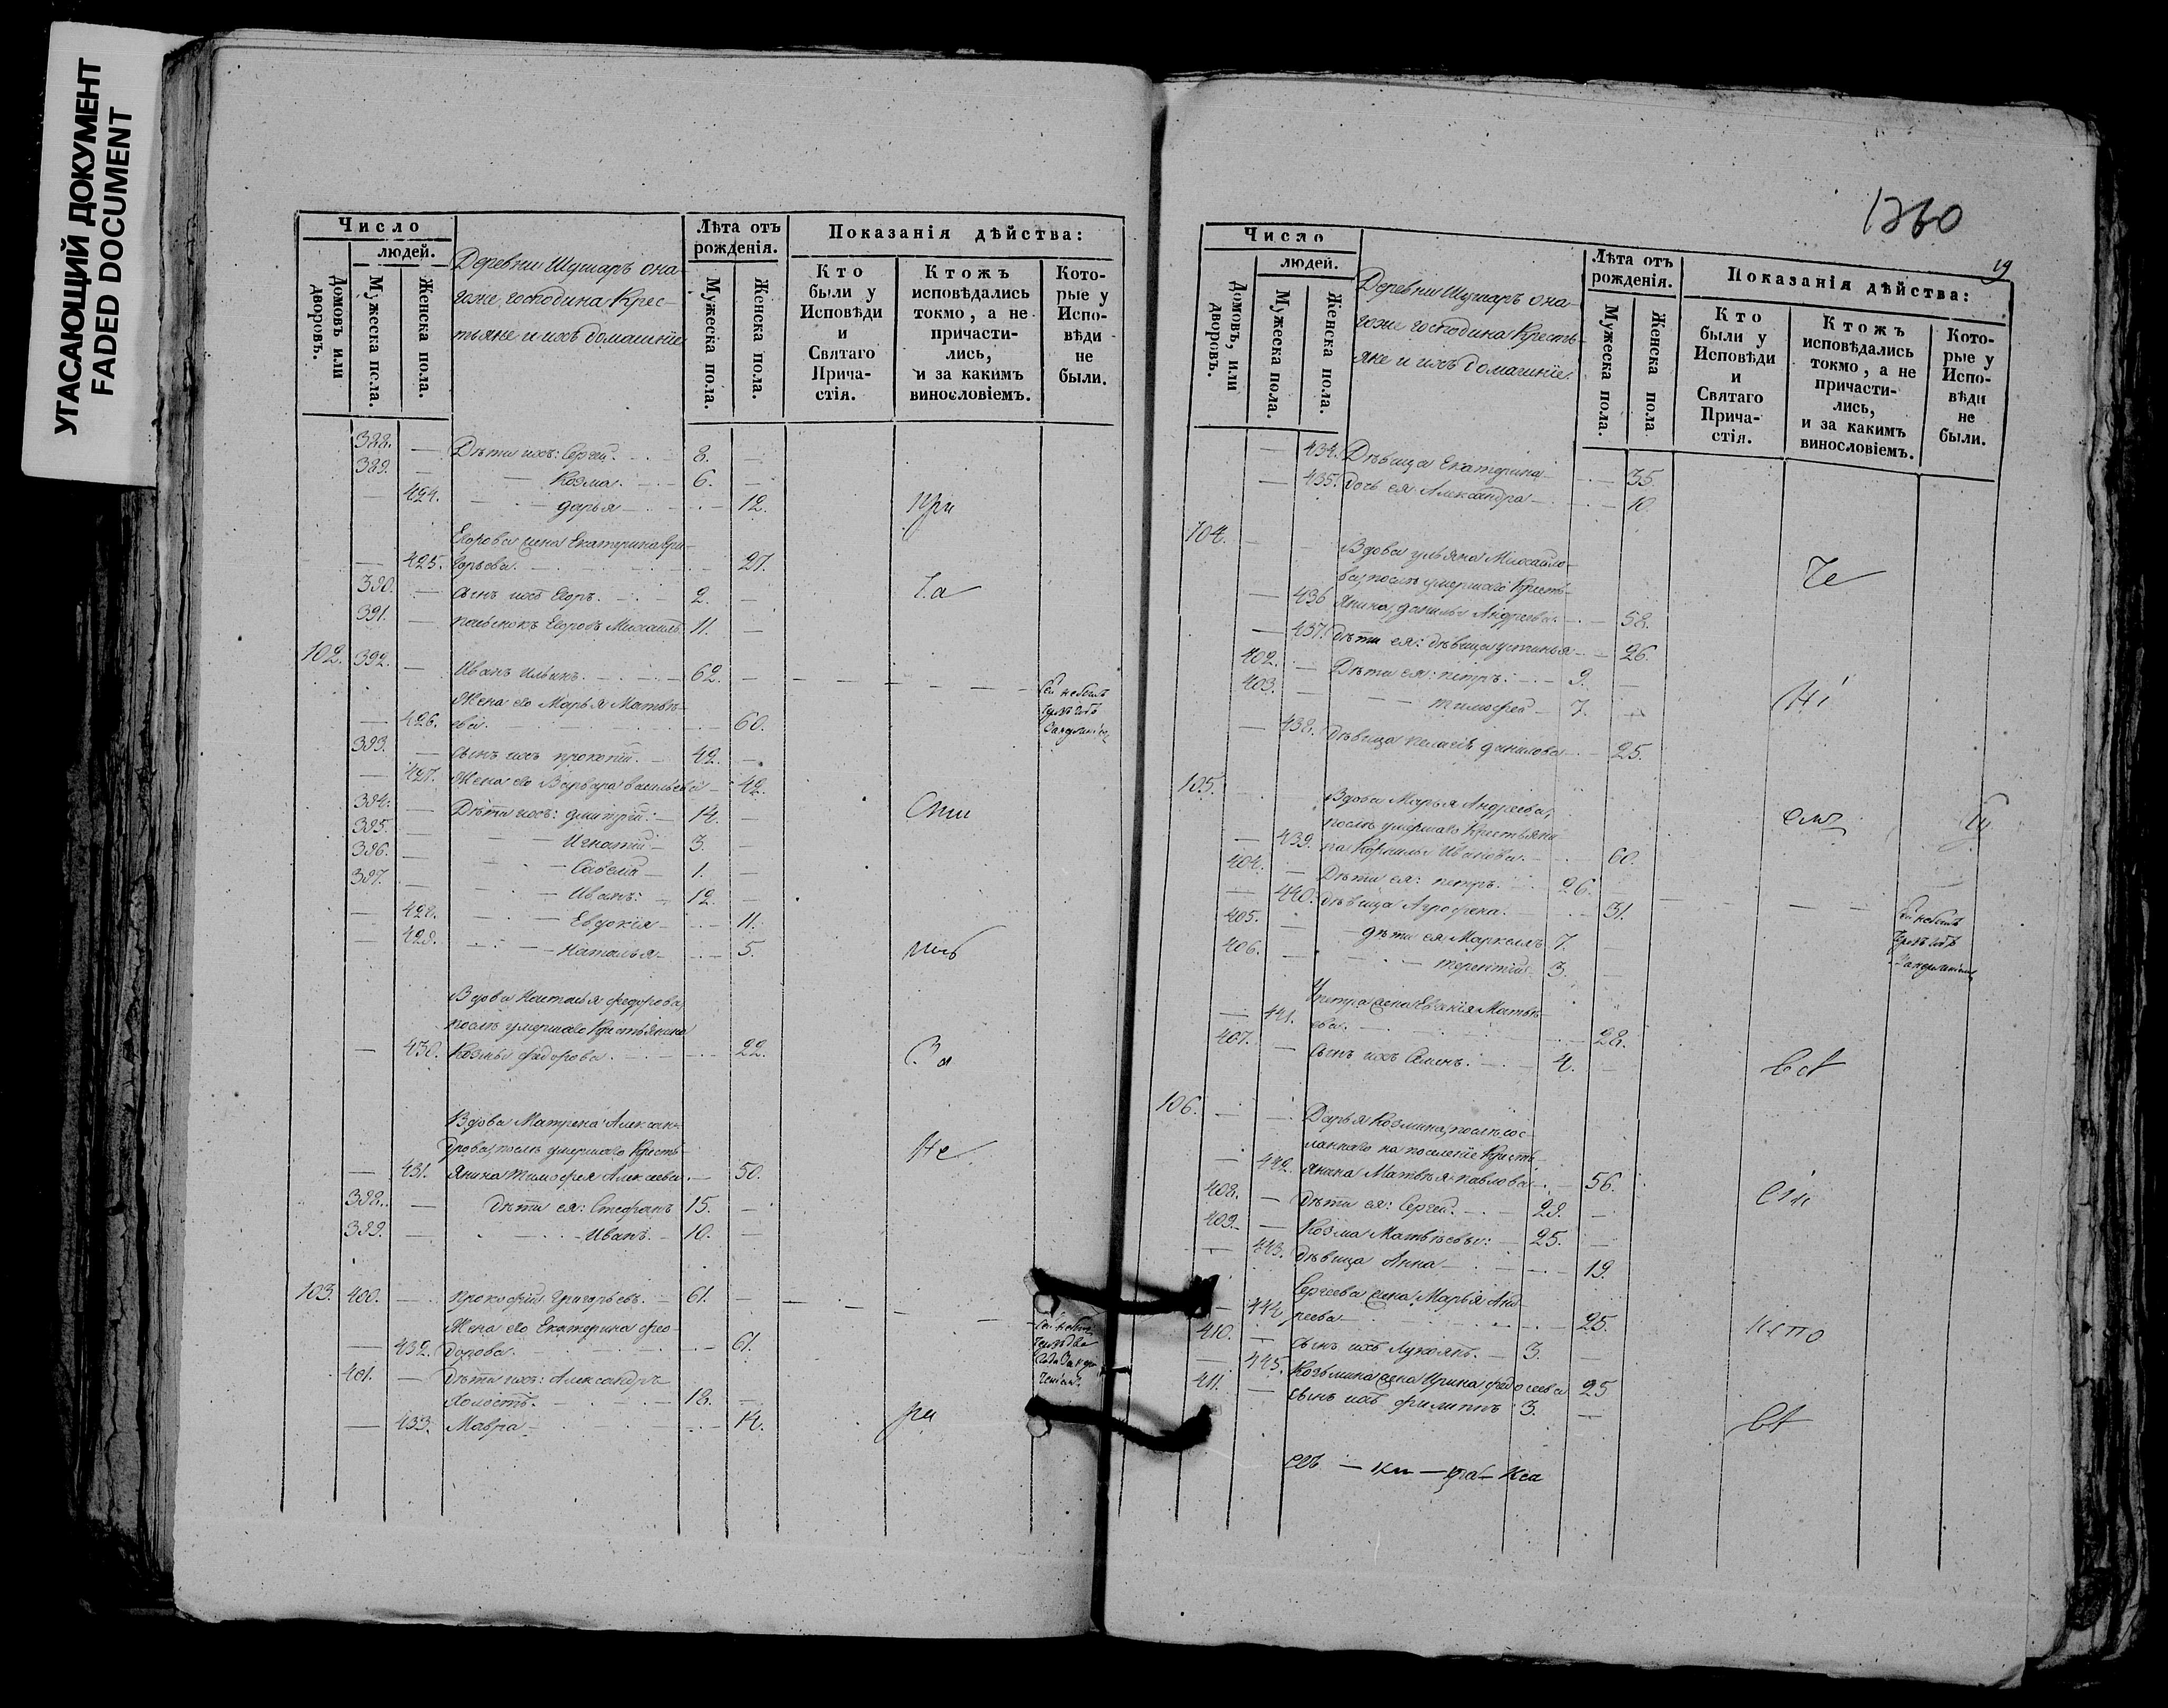 УГАСАЮЩИЙ ДОКУМЕНТ
FADED DOCUMENT
Число
людей.
Домовъ или дворовъ.
Мужеска пола.
Женска пола.
Деревни Шушаръ она-
гоже господина Крес-
тьяне и ихъ домашніе
Лѣта отъ рожденія.
Мужеска пола.
Женска пола.
Показанія дѣйства:
Кто были у Исповѣди и Святаго Прича-стія.
Ктожъ исповѣдались токмо, а не причасти-лись, и за какимъ винословіемъ.
Кото-рые у Испо-вѣди не были.
388. — Дѣти ихъ: Сергей. 8. —
389. — Козма. 6. —
— 424. Дарья 12. при
Егорова жена Екатерина Гри-
— 425. горьева. 27.
390. — сынъ ихъ Егоръ. 2. — ча
391. — Михаилъ 11. —
102. 392. — Иванъ Ильинъ. 62. —
Жена его Марья Матвѣ-
— 426. ева. 60.
393. — сынъ ихъ Прокопій. 42. —
— 427. Жена его Варвара Васильева 42.
394. — Дѣти ихъ: Дмитрій. 14. —
395. — Игнатій 3. —
396. — Савелій 1. —
397. — Иванъ: 12. —
— 428. Евдокія 11.
— 429. Наталья 5.
Вдова Наталья Федорова,
послѣ умершаго Крестьянина
— 430. Козмы Федорова. 22. За
Вдова Матрена Алексан-
дрова, послѣ умершаго Кресть- Не
— 431. янина Тимофея Алексеева. 50.
398. — Дѣти ея: Стефанъ 15. —
399. — Иванъ. 10. —
103. 400. — Прокофій Григорьевъ. 61. —
Жена его Екатерина Фео-
— 432. дорова. 61.
401. — Дѣти ихъ: Александръ
Холостъ. 18. —
— 433. Мавра 14. ри
1260
19
Число
людей.
Домовъ, или дворовъ.
Мужеска пола.
Женска пола.
Деревни Шушаръ она-
гоже господина Кресть-
яне и ихъ домашніе.
Лѣта отъ рожденія.
Мужеска пола.
Женска пола
Показанія дѣйства:
Кто были у Исповѣди и Святаго Прича-стія.
Ктожъ исповѣдались токмо, а не причасти-лись, и за какимъ винословіемъ.
Кото-рые у Испо-вѣди не были.
— 434. Дѣвица Екатерина — 35.
— 435. дочь ея Александра — 10.
104. — Вдова Ульяна Михайло-
ва, послѣ умершаго Кресть- Че
— 436 янина Данилы Андреева. — 58.
— 437. дѣти ея: дѣвица Устинья — 26.
402. — Дѣти ея: Петръ: 9. —
403. — Тимофей 7. — Ні
— 438. Дѣвица Пелагія Данилова 25.
105. — Вдова Марья Андреева,
послѣ умершаго Крестьяни-
— 439. на Корнилы Иванова. 60.
404. — Дѣти ея: Петръ. 26. —
— 440. Дѣвица Агрофена. 31.
405. — дѣти ея Маркеллъ 7.
406. — Терентій 3. —
Петра жена Матвѣ-
— 441. ева. 28.
407. — Сынъ ихъ Семенъ. 4. —
106. — Дарья Козмина, послѣ сос-
ланнаго на поселеніе Кресть-
— 442. янина Матвѣя Павлова 56.
408. — Дѣти ея: Сергей. 29. —
409. — Козма Матвѣевы: 25. —
— 443. Дѣвица Анна 19.
Сергеева жена Марья Анд-
— 444. реева 25.
410. — сынъ ихъ Лукоянъ. 3. —
— 445. Козьмина жена Ирина Федосеева 25
411. — сынъ ихъ Филиппъ 3. —